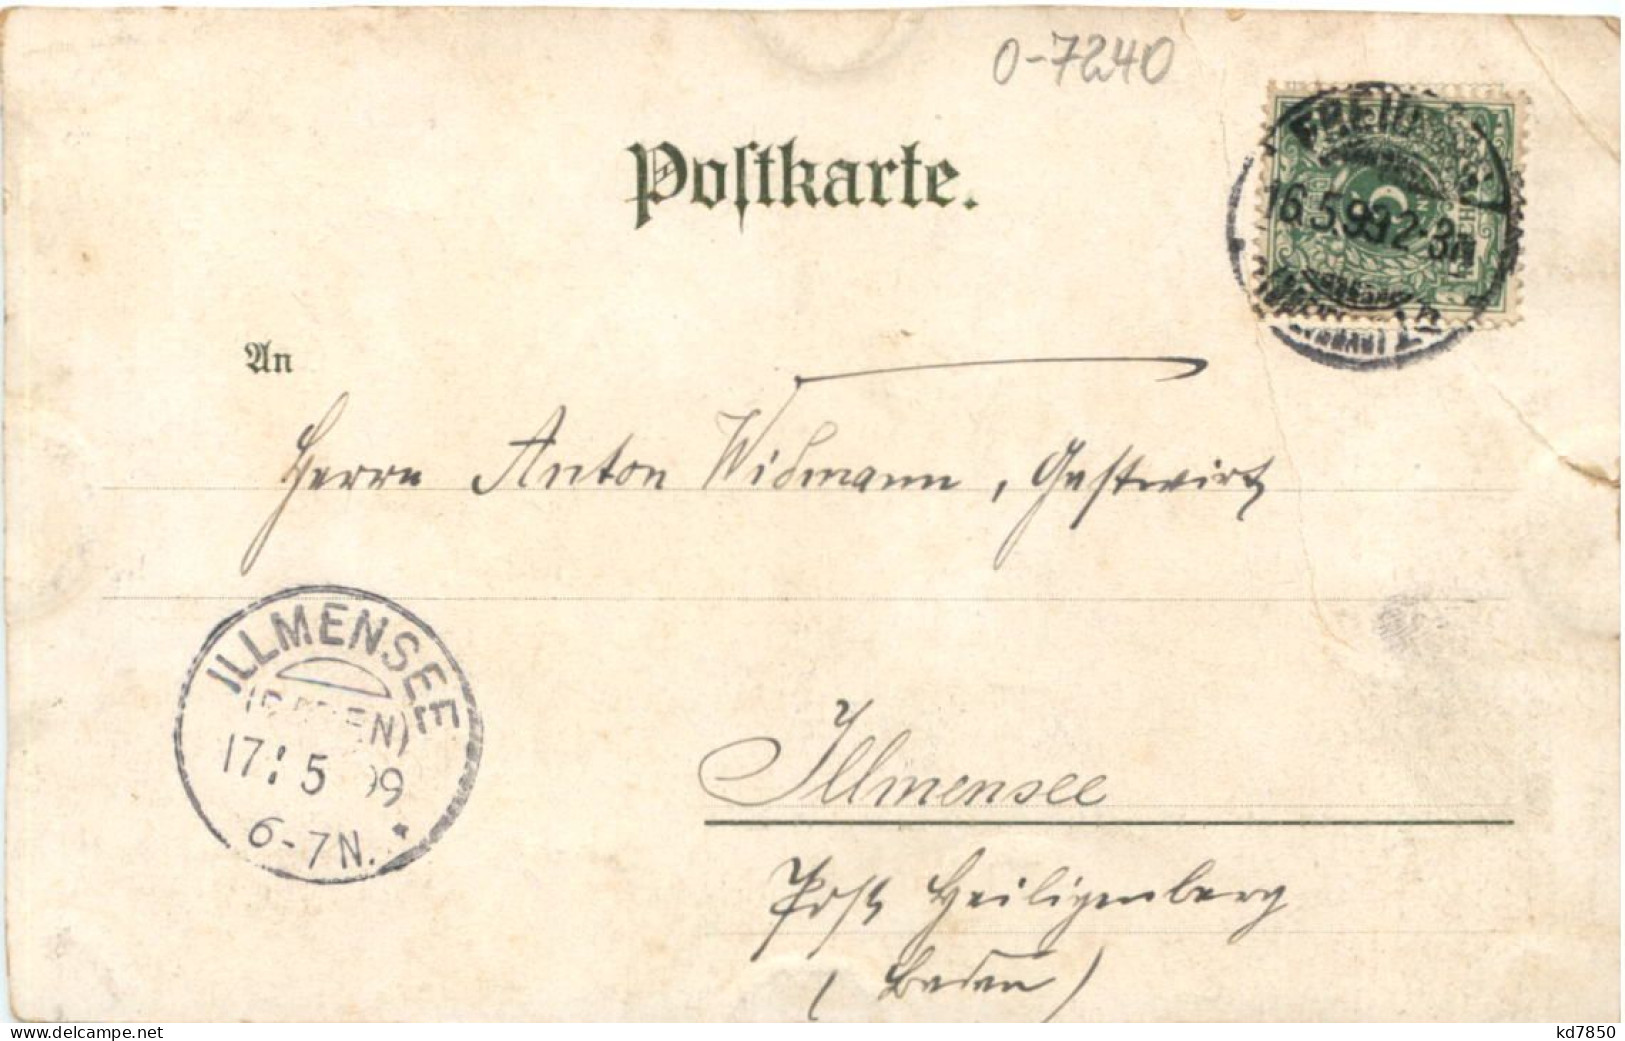 0-7240
Postkarte.
FREIBURG
16.5.99 12-3N
An
Herrn Anton Widmann, Gastwirt
ILLMENSEE
(BADEN)
17. 5 99
6-7N.
Illmensee
Post Heiligenberg
(Baden)
www.delcampe.net
kd7850